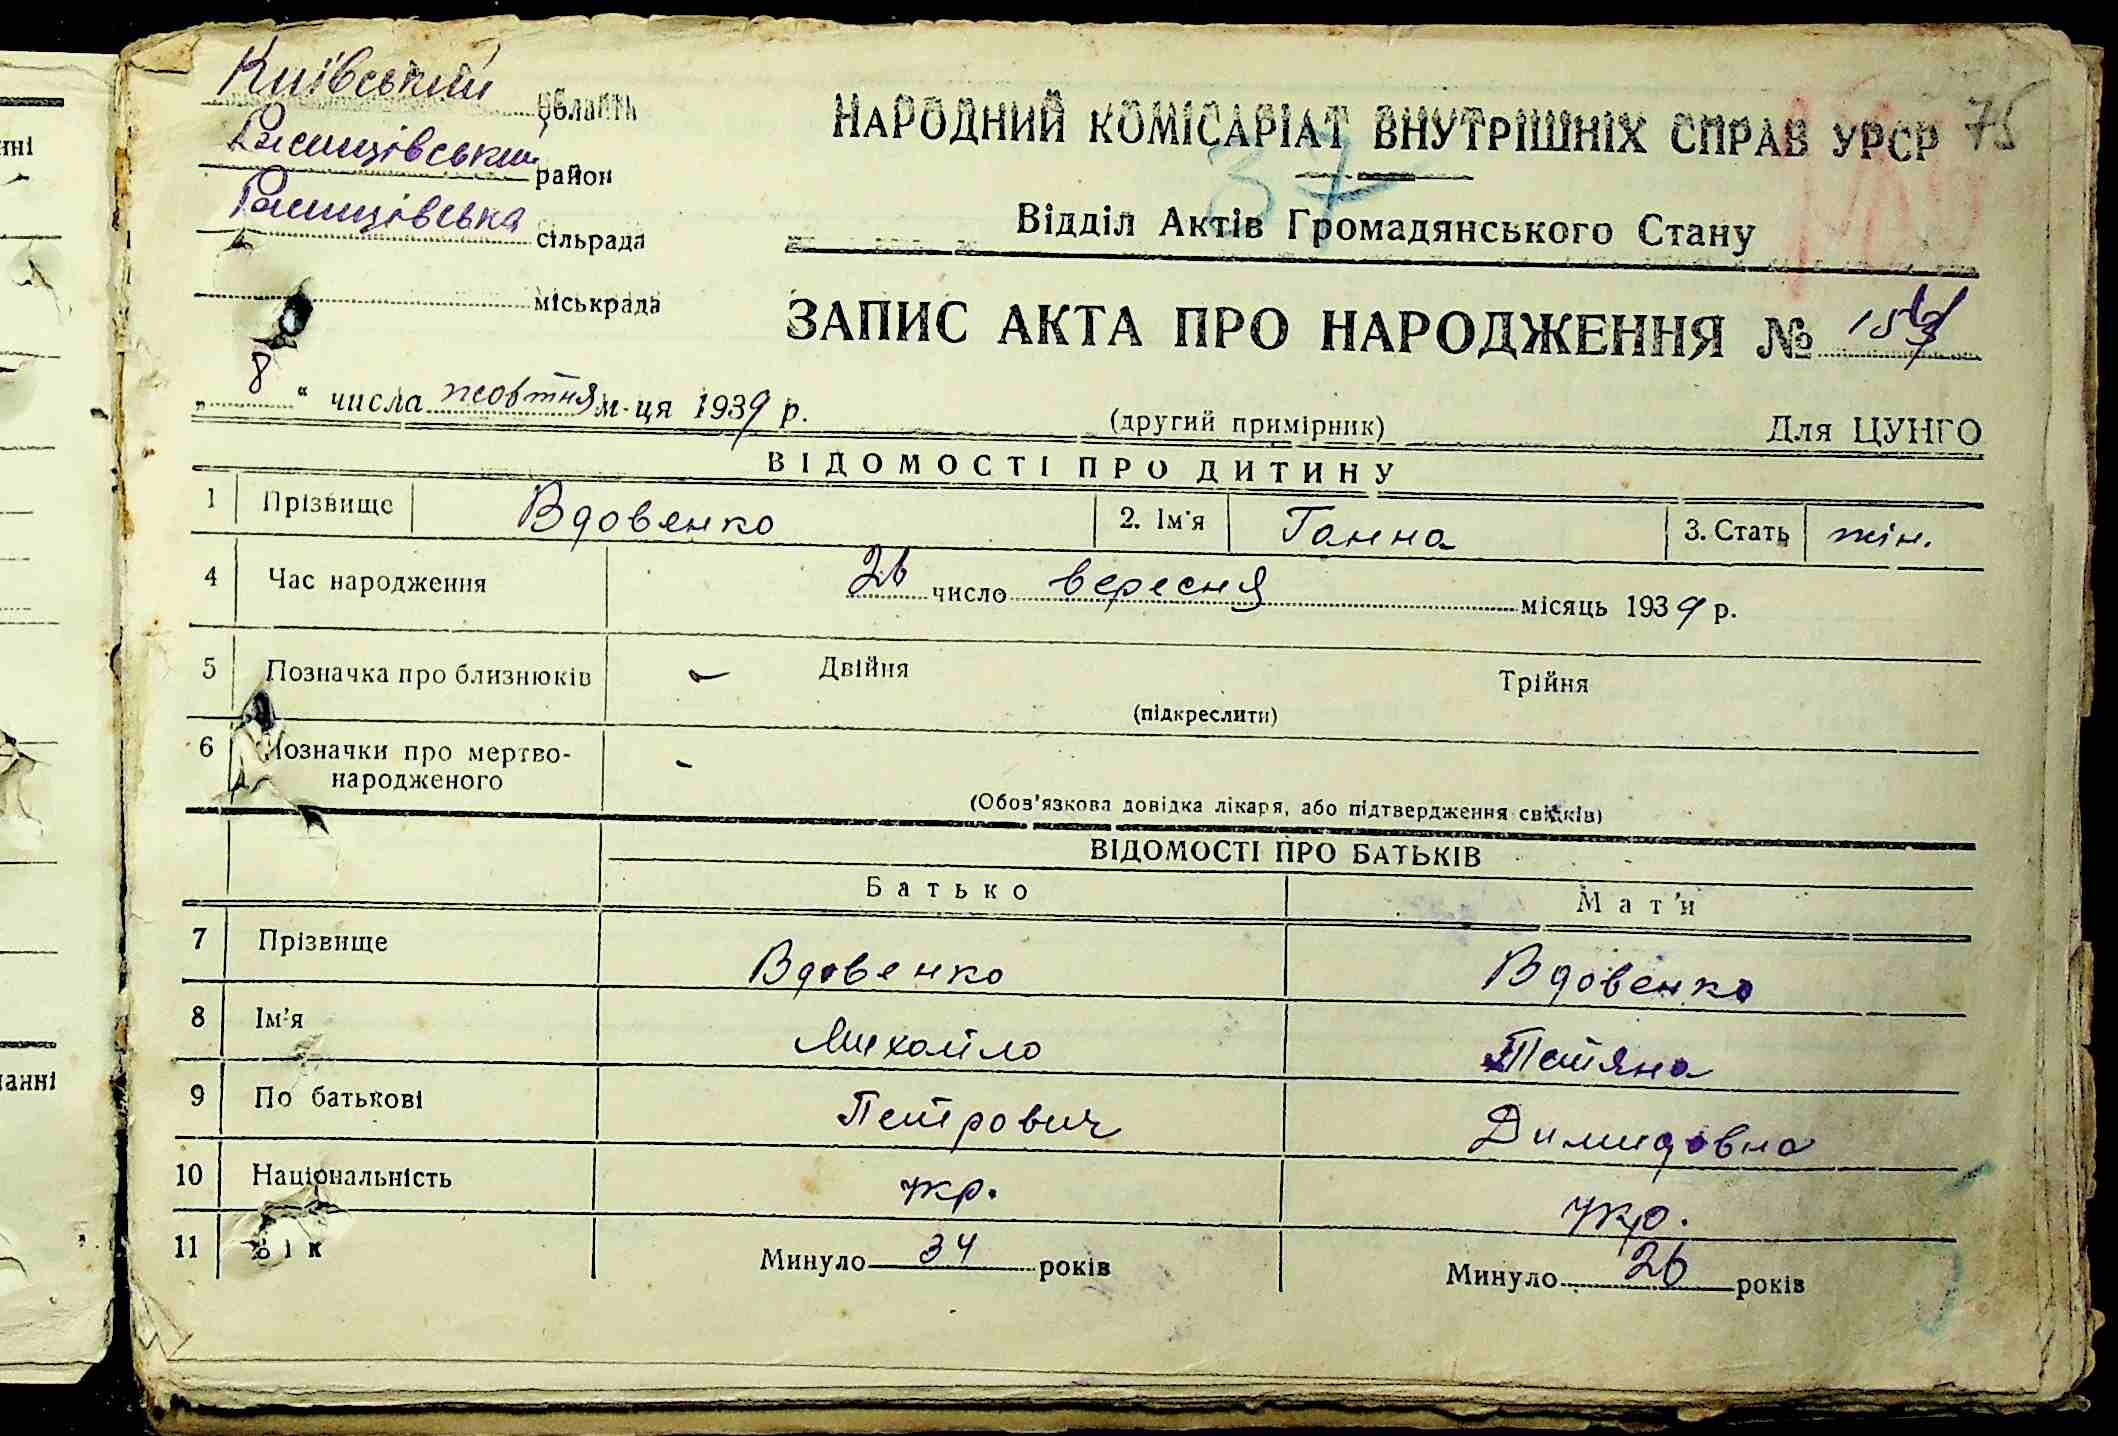 Київський область
Ржищівський район
Ржищівська сільрада
міськрада
НАРОДНИЙ КОМІСАРІАТ ВНУТРІШНІХ СПРАВ УРСР
37
Відділ Актів Громадянського Стану
ЗАПИС АКТА ПРО НАРОДЖЕННЯ №
„ 8 “ числа жовтня м-ця 1939 р.
(другий примірник)
Для ЦУНГО
ВІДОМОСТІ ПРО ДИТИНУ
1 Прізвище Вдовенко 2. Ім'я Ганна 3. Стать жін.
4 Час народження 26 число вересня місяць 1939 р.
5 Позначка про близнюків - Двійня Трійня
(підкреслити)
6 Позначки про мертво-
народженого -
(Обов'язкова довідка лікаря, або підтвердження свідків)
ВІДОМОСТІ ПРО БАТЬКІВ
Батько Мат'и
7 Прізвище Вдовенко Вдовенко
8 Ім'я Михайло Тетяна
9 По батькові Петрович Димидовна
10 Національність укр. укр.
11 Вік Минуло 34 років Минуло 26 років